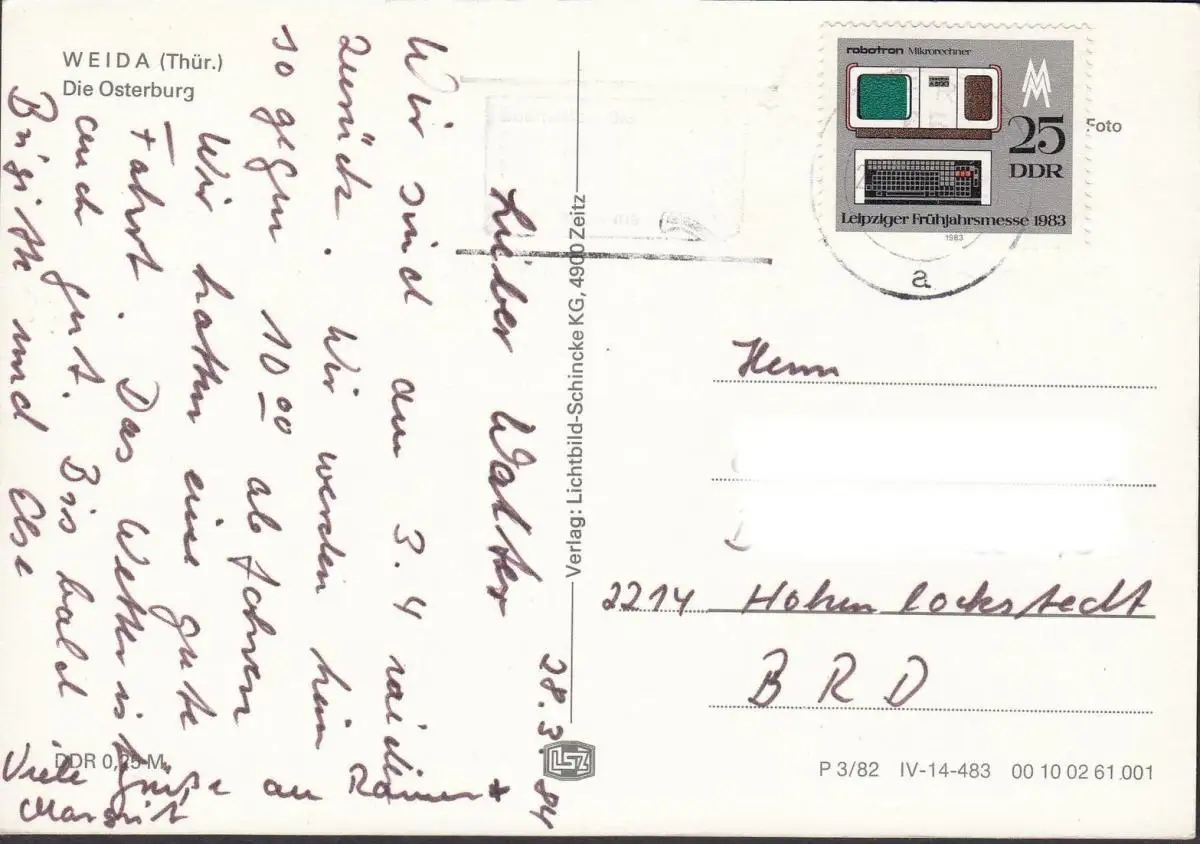 WEIDA (Thür.)
Die Osterburg
28.3.84
Lieber Walter
Wir sind am 3.4 wieder
zurück. Wir werden hier
so gegen 10 00 abfahren
Wir hatten eine gute
Fahrt. Das Wetter ist
auch gut. Bis bald
Brigitte und Else
Viele Grüße an Rainer
Margrit
DDR 0,25 M
Verlag: Lichtbild-Schincke KG, 4900 Zeitz
LSZ
robotron Mikrorechner
MM
25
DDR
Leipziger Frühjahrsmesse 1983
1983
a
Foto
Herrn
2214 Hohenlockstedt
BRD
P 3/82 IV-14-483 00 10 02 61 001